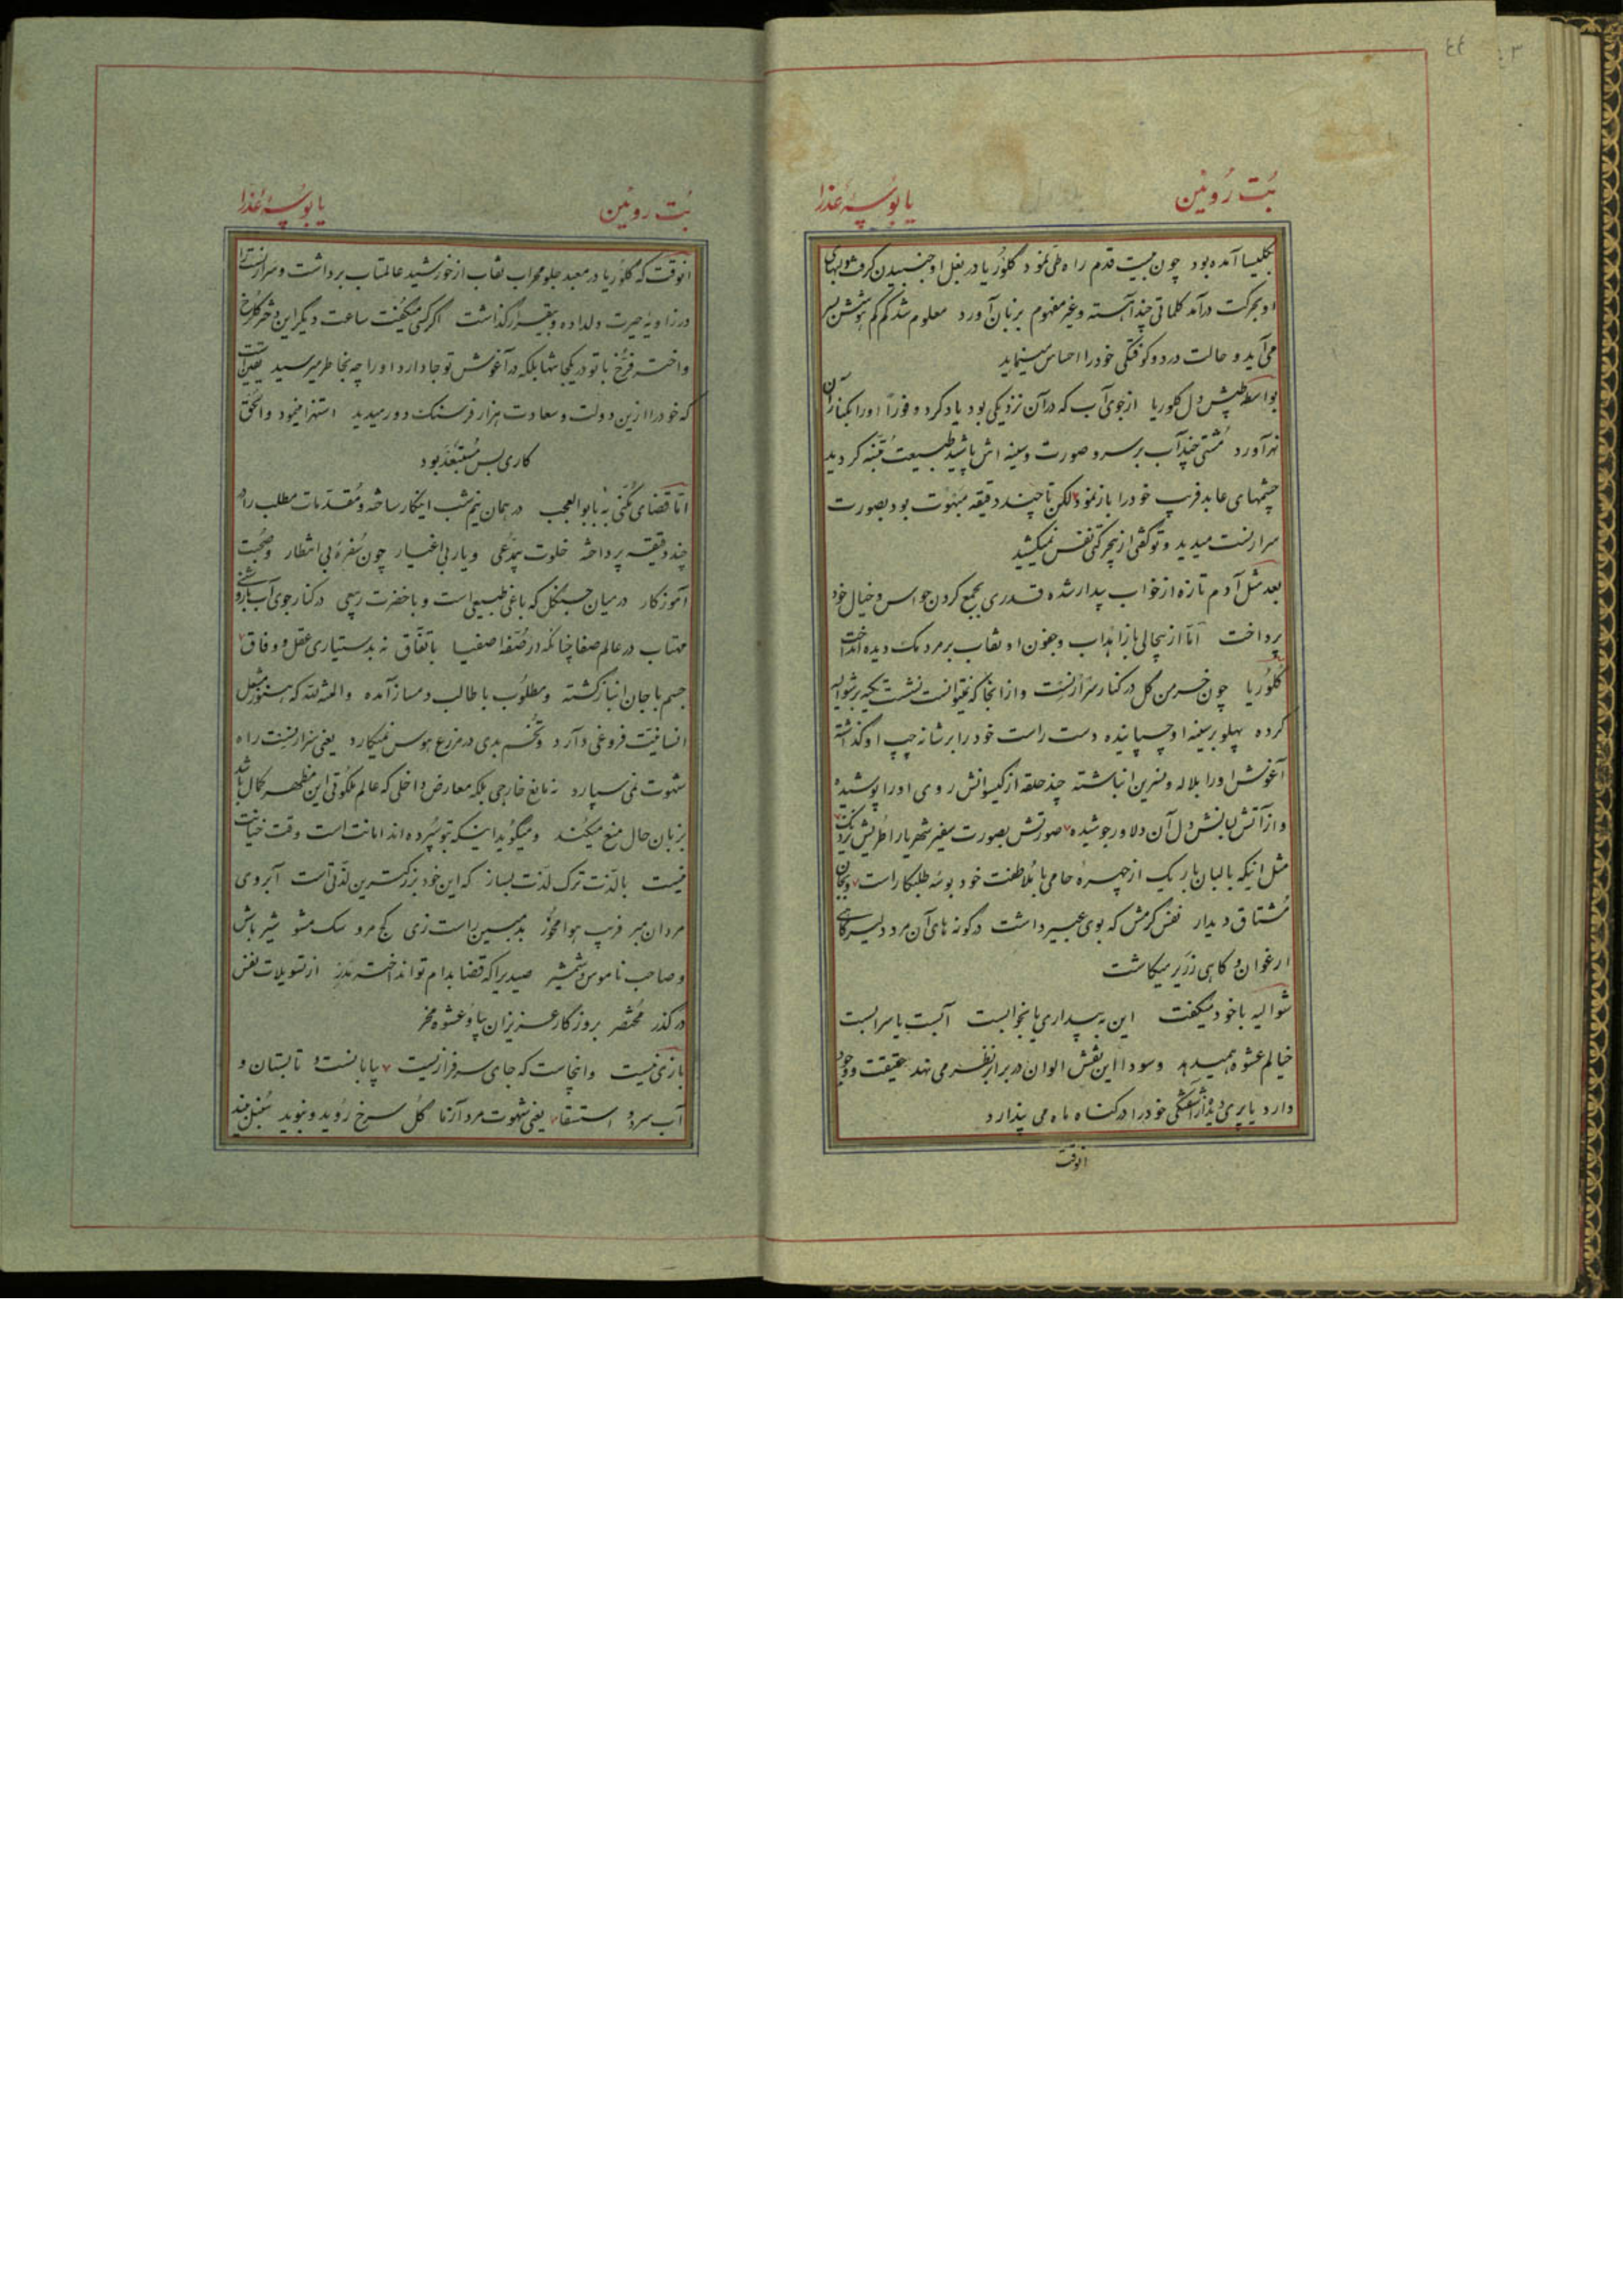 ٤٤
بُت رُوئین
یا بُوسۀ عُذرا
بکلیسا آمده بود چون بیست قدم راه طی نمود کلوریا در بغل او جنبیدن گرفت
او بحرکت درآمد کلماتی چند آهسته و غیر مفهوم بر زبان آورد معلوم شد کم کم هوشش بسر
می‌آید و حالت درد و کوفتگی خود را احساس مینماید
بواسطه طپش دل کلوریا از جوی آب که در آن نزدیکی بود یاد کرد و فوراً او را بکنار آن
نهر آورد مُشتی چند آب بر سر و صورت و سینه اش پاشید طبیعت مُتنبّه کردید
چشمهای عابد فریب خود را باز نمود لکن تا چند دقیقه مبهوت بود بصورت
سرارنست میدید و تو گفتی از بیحرکتی نفس نمیکشید
بعد مثل آدم تازه از خواب بیدار شده قدری بجمع کردن حواس و خیال خود
پرداخت امّا از بیحالی باز اهداب و جفون او نقاب بر مردمک دیده انداخت
کلُوریا چون خرمن کل در کنار سرارنست و از انجا که نمیتوانست نشست تکیه بر شوالیه
کرده پهلو بر سینه او چسپانیده دست راست خود را بر شانه چپ او گذاشته
آغوش او را بلاله و نسرین انباشته چند حلقه از کیسوانش روی او را پوشیده
و از آتش تابش دل آن دلاور جوشیده صورتش بصورت سفیر شهریار اطریش نزدیک
مثل اینکه با لبان باریک از چهرۀ حامی با مُلاطفت خود بوسه طلبکار است و بجان
مُشتاق دیدار نفس کرمش که بوی عبیر داشت در کونه های آن مرد دلیر کاهی
ارغوان و کاهی زریر میکاشت
شوالیه با خود میگفت این به بیداری یا بخوابست آبست یا سرابست
خیالم عشوه میدهد و سودا این نقش الوان در برابر نظرم می نهد حقیقت وجود
دارد یا پری ویژه ازشکی خود را در کنار ما می پندارد
انوقت
بُت روئین
یا بُوسۀ عُذرا
انوقت که کلُوریا در معبد جلو محراب نقاب از خورشید عالمتاب برداشت و سرارنست را
در زاویه حیرت دلداده و بیقرار گذاشت اگر کسی میگفت ساعت دیگر این دختر گلرخ
و اختر فرّخ با تو در یکجا تنها بلکه در آغوش تو جا دارد او را چه بخاطر میرسید یقین است
که خود را ازین دولت و سعادت هزار فرسنک دور میدید استهزا مینمود و الحق
کاری بس مُستبعد بود
امّا قضای مُکنّی به بابوالعجب در همان نیم شب اینکار ساخته و مُقدّمات مطلب را در
چند دقیقه پرداخته خلوت بیمدّعی و یار بی اغیار چون سُفرۀ بی انتظار و صُحبت
آموزکار در میان جنگل که باغی طبیعی است و با خضرت ربیعی در کنار جوی آب با روشنی
مهتاب در عالم صفا چنانکه در صُفّۀ اصفیا باتفّاق نه بدستیاری عقل و وفاق
جسم با جان انباز کشته و مطلُوب با طالب دمساز آمده و المنّه لله که هنوز مشعل
انسانیّت فروغی دارد و تُخم بدی در مزرع هوس نمیکارد یعنی سرارنست راه
شهوت نمی سپارد نه مانع خارجی بلکه معارض داخلی که عالم ملکُوتی این مظهر کمال باشد
بزبان حال منع میکُند و میگوید اینکه بتو سپرده اند امانت است وقت خیانت
نیست با لذّت ترک لذّت بساز که این خود بزرگترین لذّتی است آبروی
مردان مبر فریب هوا مخور بد مبین راست زی کج مرو سک مشو شیر باش
و صاحب ناموس و شمشیر صیدیرا که قضا بدام تو انداخته مَدَر از تسویلات نفس
در گذر مُختصر بروزگار عزیزان بپا و عشوه مخر
بازی نیست و اینجاست که جای سرفرازیست پیابانست و تابستان و
آب سرد و استسقا یعنی شهوت مرد آزما گل سرخ رُوید و نبوید سُنبل بیند